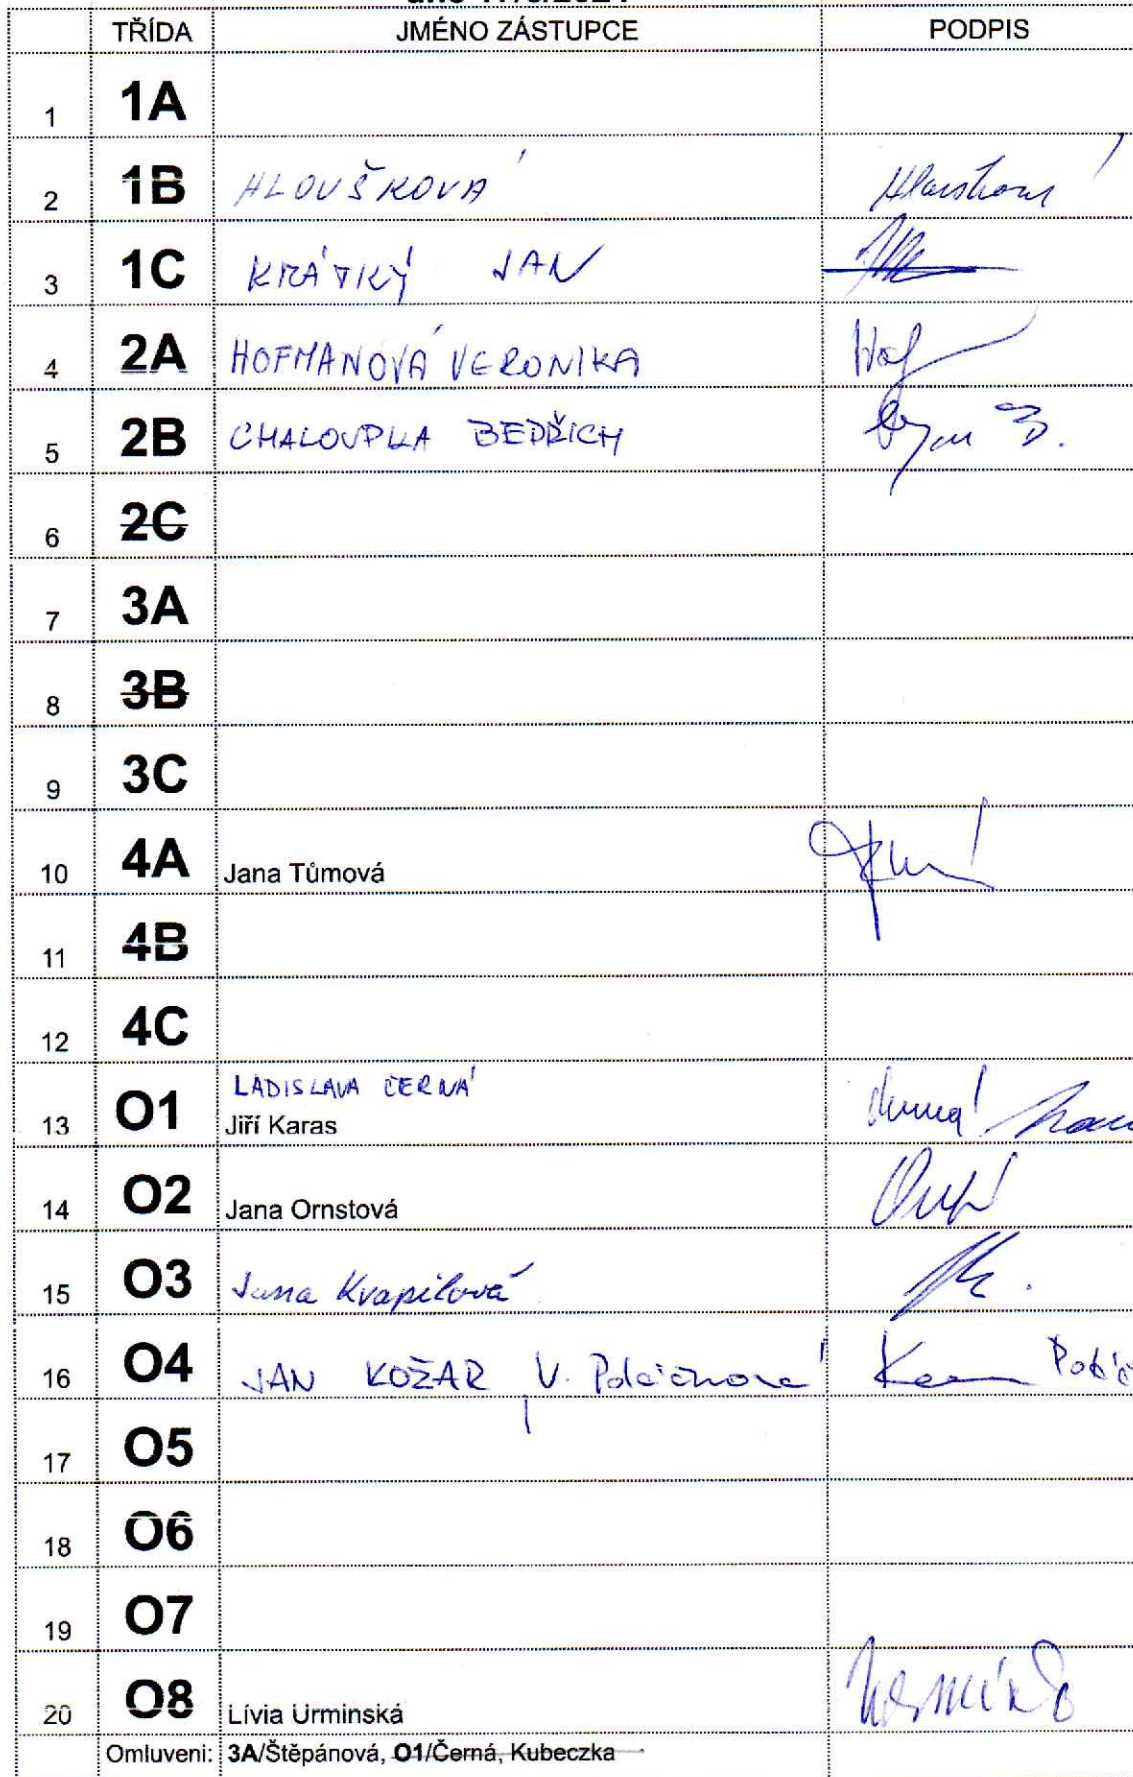 TŘÍDA JMÉNO ZÁSTUPCE PODPIS
1 1A
2 1B HLOUŠKOVÁ
3 1C KRÁTKÝ JAN
4 2A HOFMANOVÁ VERONIKA
5 2B CHALOUPKA BEDŘICH
6 2C
7 3A
8 3B
9 3C
10 4A Jana Tůmová
11 4B
12 4C
LADISLAVA ČERNÁ
13 O1 Jiří Karas
14 O2 Jana Ornstová
15 O3 Jana Kvapilová
16 O4 JAN KOŽAR, V.
17 O5
18 O6
19 O7
20 O8 Lívia Urminská
Omluveni: 3A/Štěpánová, O1/Černá, Kubeczka